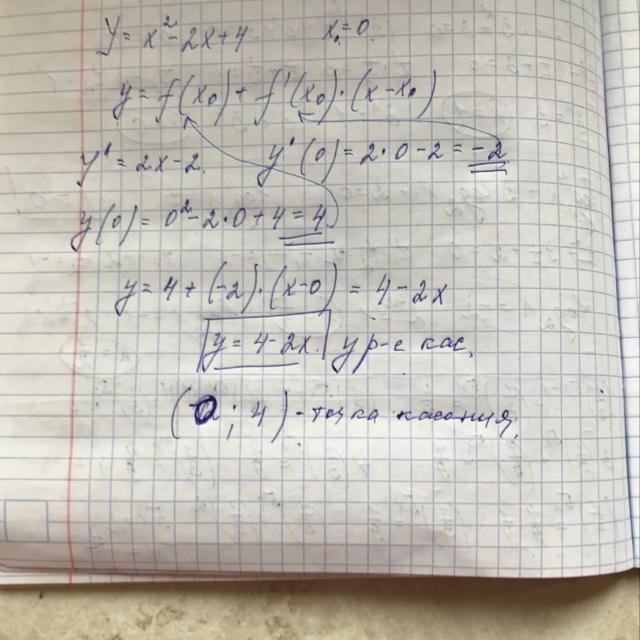 y = x² - 2x + 4   x₀ = 0.
y = f(x₀) + f'(x₀)·(x - x₀)
y' = 2x - 2.   y'(0) = 2·0 - 2 = -2
y(0) = 0² - 2·0 + 4 = 4
y = 4 + (-2)·(x - 0) = 4 - 2x
y = 4 - 2x. ур-е кас.
(0; 4) - точка касания.